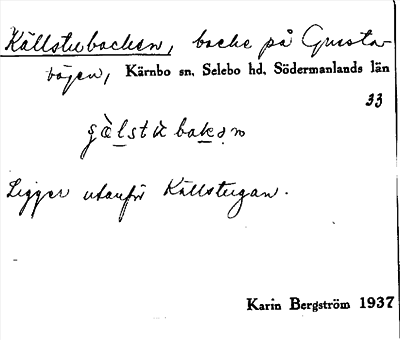 Källstubacken, backe på Gusta-
böjen, Kärnbo sn, Selebo hd, Södermanlands län
33
Ligger utanför Källstugan.
Karin Bergström 1937